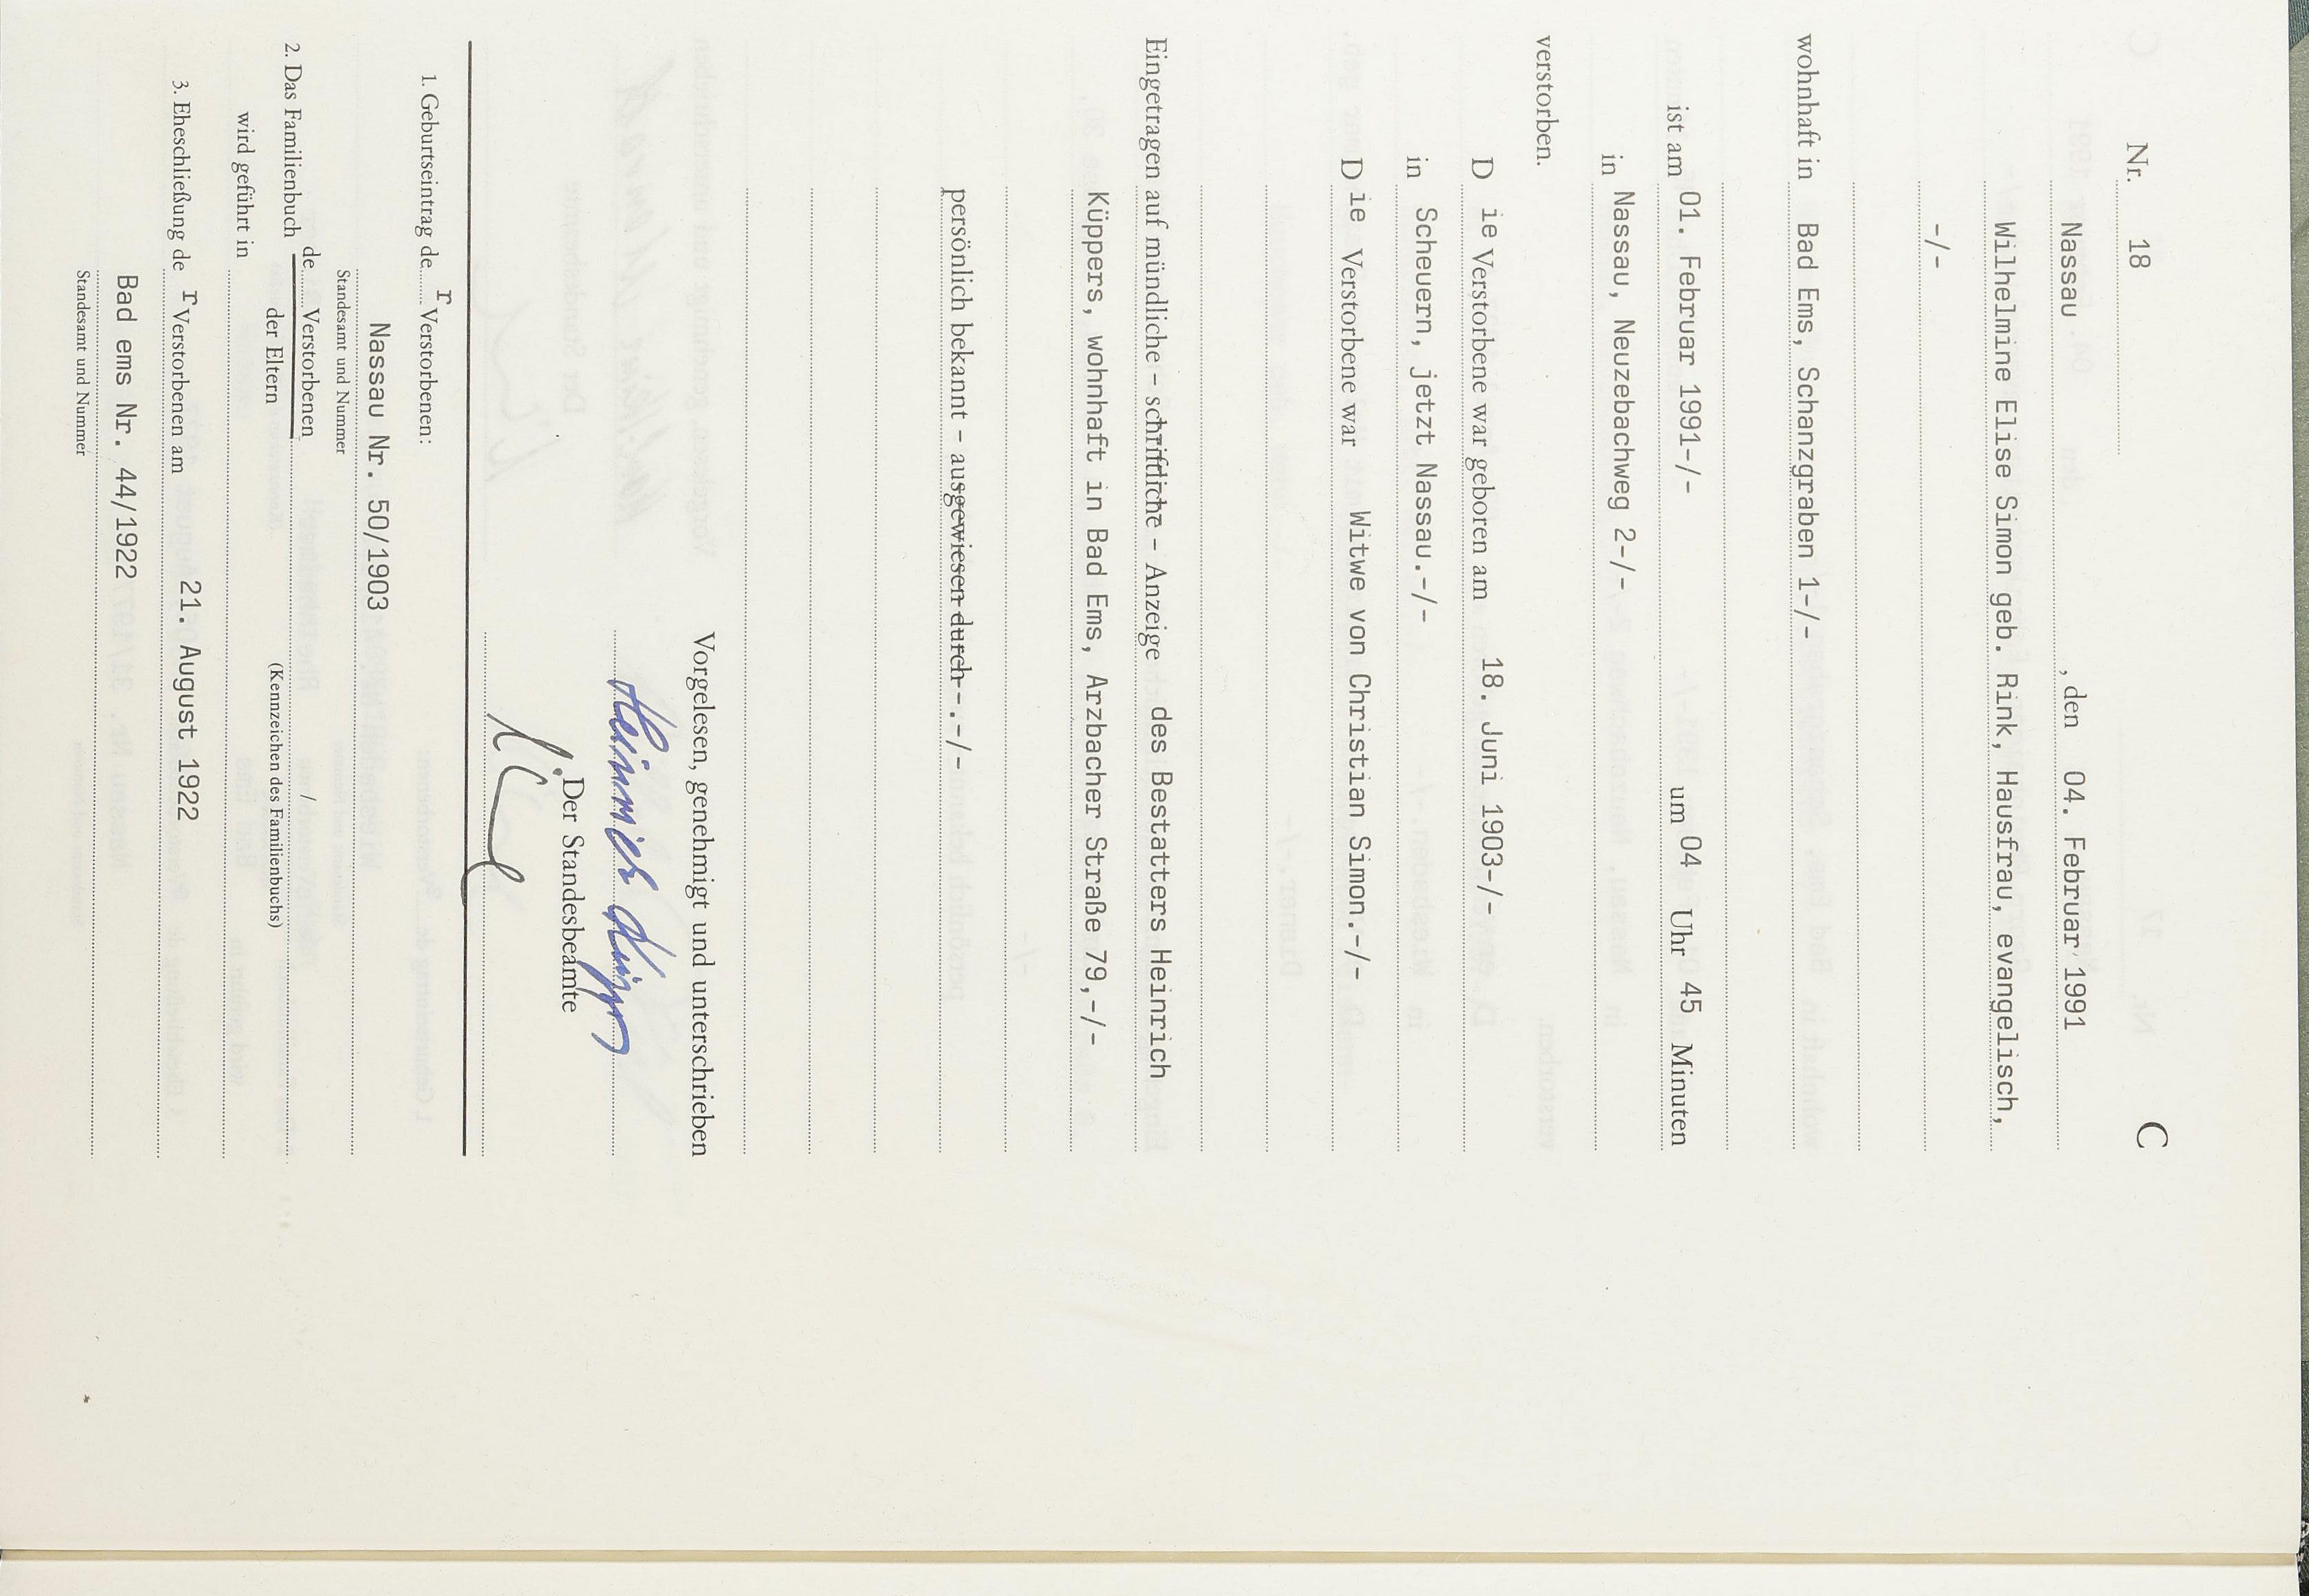 Nr. 18 C
Nassau , den 04. Februar 1991
Wilhelmine Elise Simon geb. Rink, Hausfrau, evangelisch,
-/-
wohnhaft in Bad Ems, Schanzgraben 1-/-
ist am 01. Februar 1991-/- um 04 Uhr 45 Minuten
in Nassau, Neuzebachweg 2-/-
verstorben.
D ie Verstorbene war geboren am 18. Juni 1903-/-
in Scheuern, jetzt Nassau.-/-
D ie Verstorbene war Witwe von Christian Simon.-/-
Eingetragen auf mündliche - schriftliche - Anzeige des Bestatters Heinrich
Küppers, wohnhaft in Bad Ems, Arzbacher Straße 79,-/-
persönlich bekannt - ausgewiesen durch -.-/-
Vorgelesen, genehmigt und unterschrieben
Heinrich
Der Standesbeamte
1. Geburtseintrag de r Verstorbenen:
Nassau Nr. 50/1903
Standesamt und Nummer
2. Das Familienbuch de Verstorbenen /
der Eltern (Kennzeichen des Familienbuchs)
wird geführt in
3. Eheschließung de r Verstorbenen am 21. August 1922
Bad ems Nr. 44/1922
Standesamt und Nummer